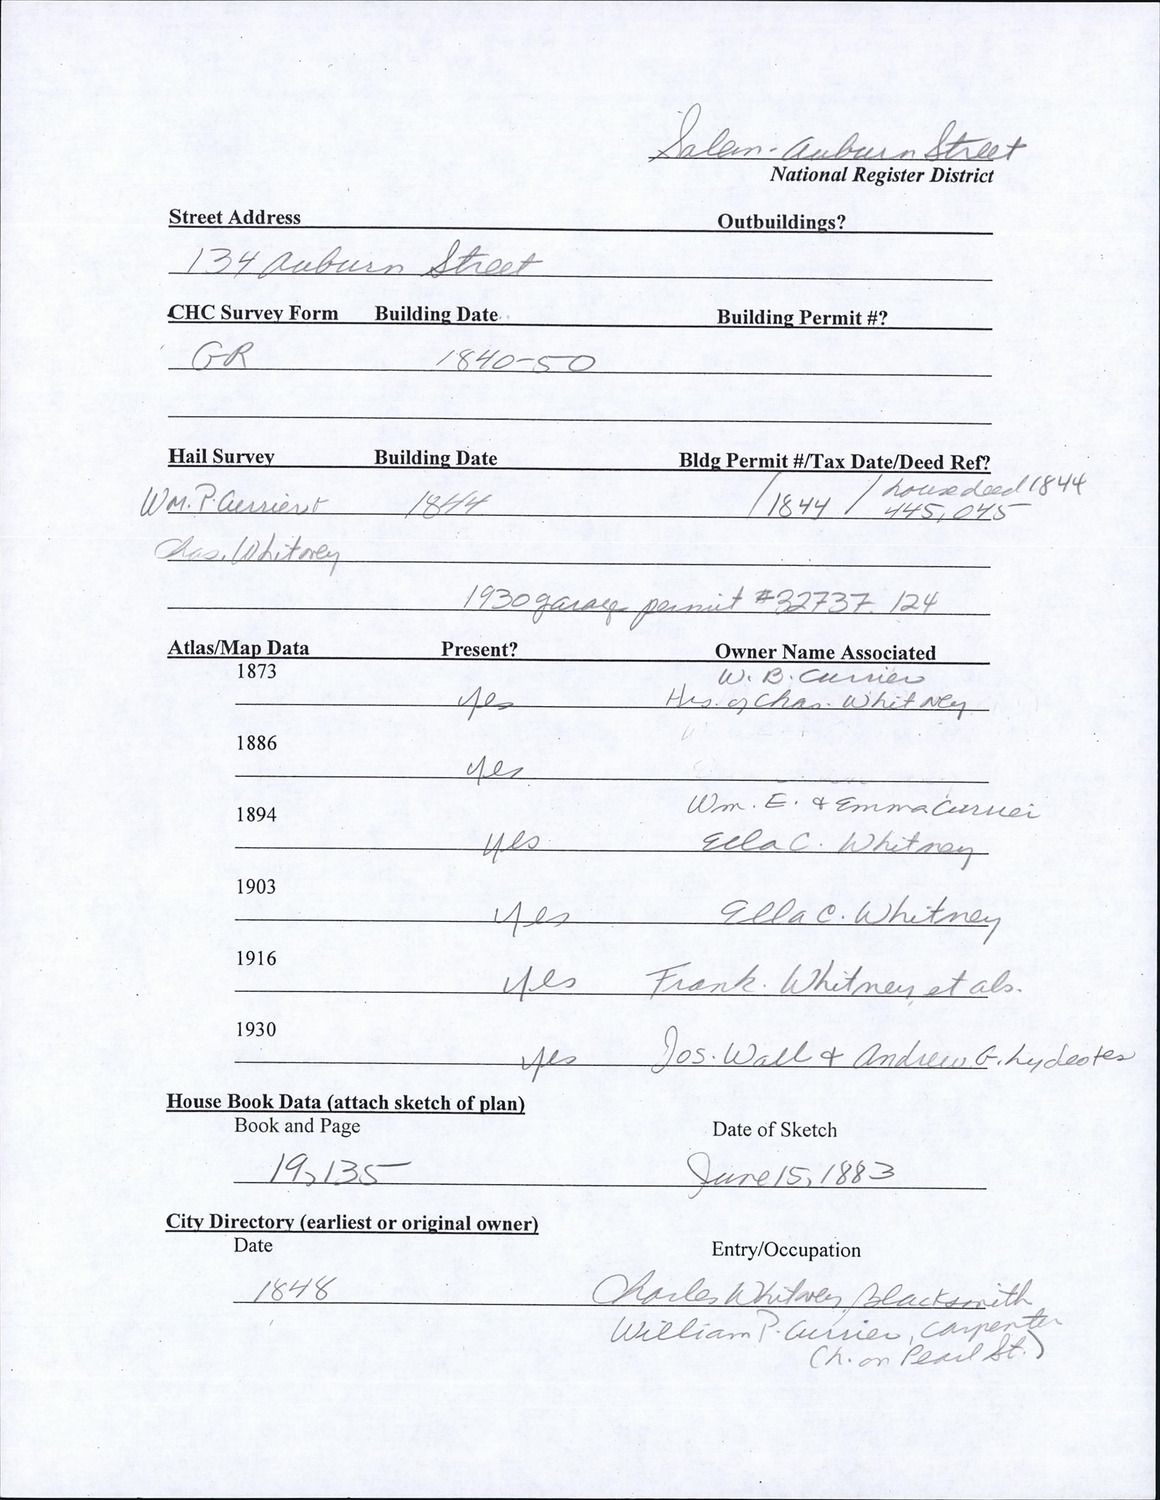 Salem-Auburn Street
National Register District
Street Address Outbuildings?
134 Auburn Street
CHC Survey Form Building Date Building Permit #?
GR 1840-50
Hail Survey Building Date Bldg Permit #/Tax Date/Deed Ref?
Wm. P. Currier + 1844 /1844 / house deed 1844
445,045
Chas. Whitney
1930 garage permit #32737 124
Atlas/Map Data Present? Owner Name Associated
1873 W. B. Currier
yes Hrs. of Chas. Whitney
1886
yes
1894 Wm. E. & Emma Currier
yes Ella C. Whitney
1903
yes Ella C. Whitney
1916
yes Frank. Whitney et als.
1930
yes Jos. Wall & Andrew G.
House Book Data (attach sketch of plan)
Book and Page Date of Sketch
19,135 June 15, 1883
City Directory (earliest or original owner)
Date Entry/Occupation
1848 Charles Whitney, Blacksmith
William P. Currier, carpenter
(h. on Pearl St.)